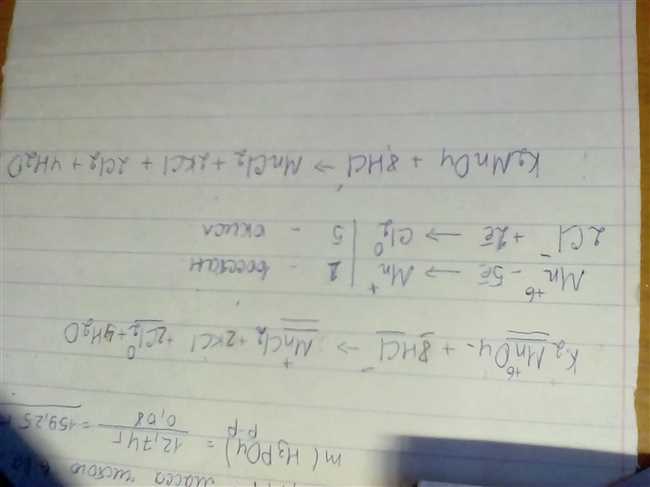 масса чистого
m(H3PO4) р-р = 12,74г / 0,08 = 159,25
K2Mn+6O4 + 8HCl- → Mn+Cl2 + 2KCl + 2Cl2 0 + 4H2O
Mn+6 - 5e → Mn+ | 2 - восстан
2Cl- + 2e → Cl2 0 | 5 - окисл
K2MnO4 + 8HCl → MnCl2 + 2KCl + 2Cl2 + 4H2O